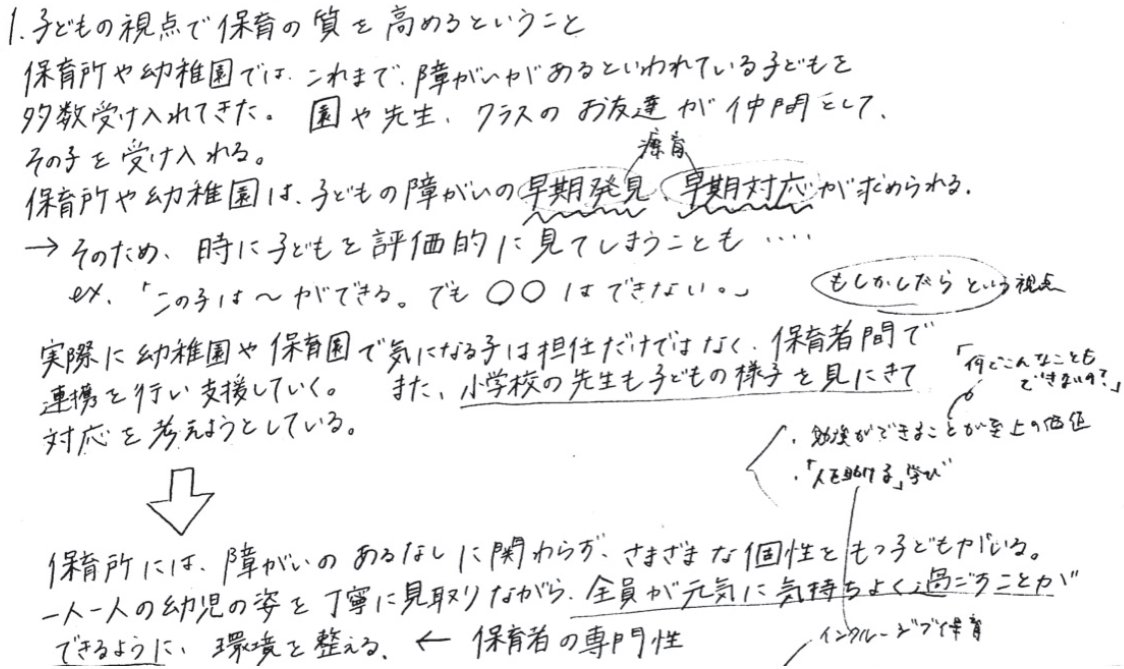 1. 子どもの視点で保育の質を高めるということ
保育所や幼稚園では、これまで、障がいがあるといわれている子どもを
多数受け入れてきた。 園や先生、クラスのお友達が仲間として、
その子を受け入れる。
療育
保育所や幼稚園は、子どもの障がいの早期発見、早期対応が求められる。
→ そのため、時に子どもを評価的に見てしまうことも ‥‥
ex. 「この子は〜ができる。でも〇〇はできない。」
もしかしたら という視点
実際に幼稚園や保育園で気になる子は担任だけではなく、保育者間で
連携を行い支援していく。 また、小学校の先生も子どもの様子を見にきて
対応を考えようとしている。
「何でこんなことも
できないの?」
・勉強ができることが至上の価値
・「人を助ける」学び
保育所には、障がいのあるなしに関わらず、さまざまな個性をもつ子どもがいる。
一人一人の幼児の姿を丁寧に見取りながら、全員が元気に気持ちよく過ごすことが
できるように、環境を整える。 ← 保育者の専門性
インクルーシブ保育